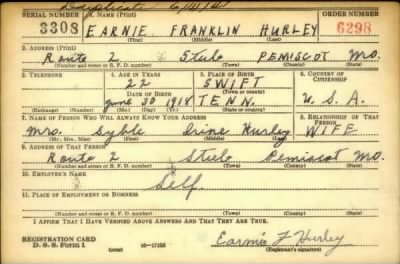 Duplicate 6/11/41
SERIAL NUMBER 1. NAME (Print) ORDER NUMBER
3308 EARNIE FRANKLIN HURLEY 6298
(First) (Middle) (Last)
2. ADDRESS (Print)
Route 2 Steele PEMISCOT Mo.
(Number and street or R. F. D. number) (Town) (County) (State)
3. TELEPHONE 4. AGE IN YEARS 5. PLACE OF BIRTH 6. COUNTRY OF CITIZENSHIP
22 SWIFT
DATE OF BIRTH (Town or county)
June 30 1918 TENN. U.S.A.
(Exchange) (Number) (Mo.) (Day) (Yr.) (State or country)
7. NAME OF PERSON WHO WILL ALWAYS KNOW YOUR ADDRESS 8. RELATIONSHIP OF THAT PERSON
Mrs. Syble Irine Hurley WIFE
(Mr., Mrs., Miss) (First) (Middle) (Last)
9. ADDRESS OF THAT PERSON
Route 2 Steele Pemiscot Mo.
(Number and street or R. F. D. number) (Town) (County) (State)
10. EMPLOYER'S NAME
Self.
11. PLACE OF EMPLOYMENT OR BUSINESS
(Number and street or R. F. D. number) (Town) (County) (State)
I AFFIRM THAT I HAVE VERIFIED ABOVE ANSWERS AND THAT THEY ARE TRUE.
REGISTRATION CARD
D. S. S. Form 1 (over) 16-17105
Earnie F Hurley
(Registrant's signature)